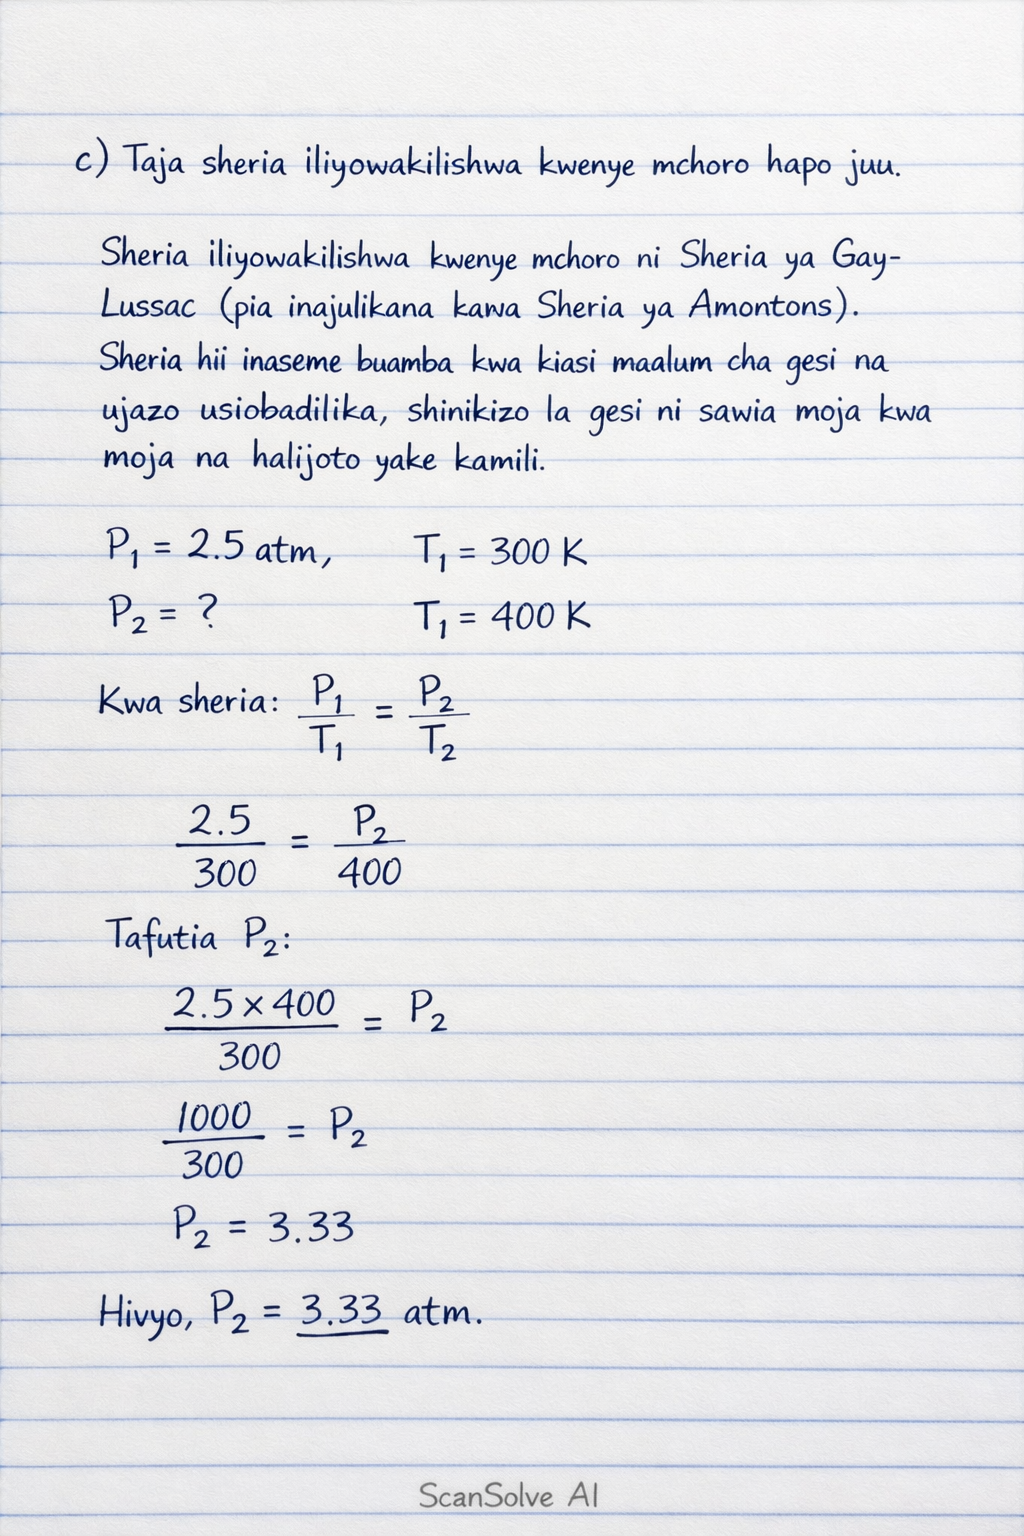 c) Taja sheria iliyowakilishwa kwenye mchoro hapo juu.
Sheria iliyowakilishwa kwenye mchoro ni Sheria ya Gay-
Lussac (pia inajulikana kawa Sheria ya Amontons).
Sheria hii inaseme buamba kwa kiasi maalum cha gesi na
ujazo usiobadilika, shinikizo la gesi ni sawia moja kwa
moja na halijoto yake kamili.
P₁ = 2.5 atm, T₁ = 300 K
P₂ = ? T₁ = 400 K
Kwa sheria: P₁/T₁ = P₂/T₂
2.5/300 = P₂/400
Tafutia P₂:
2.5 × 400/300 = P₂
1000/300 = P₂
P₂ = 3.33
Hivyo, P₂ = 3.33 atm.
ScanSolve AI